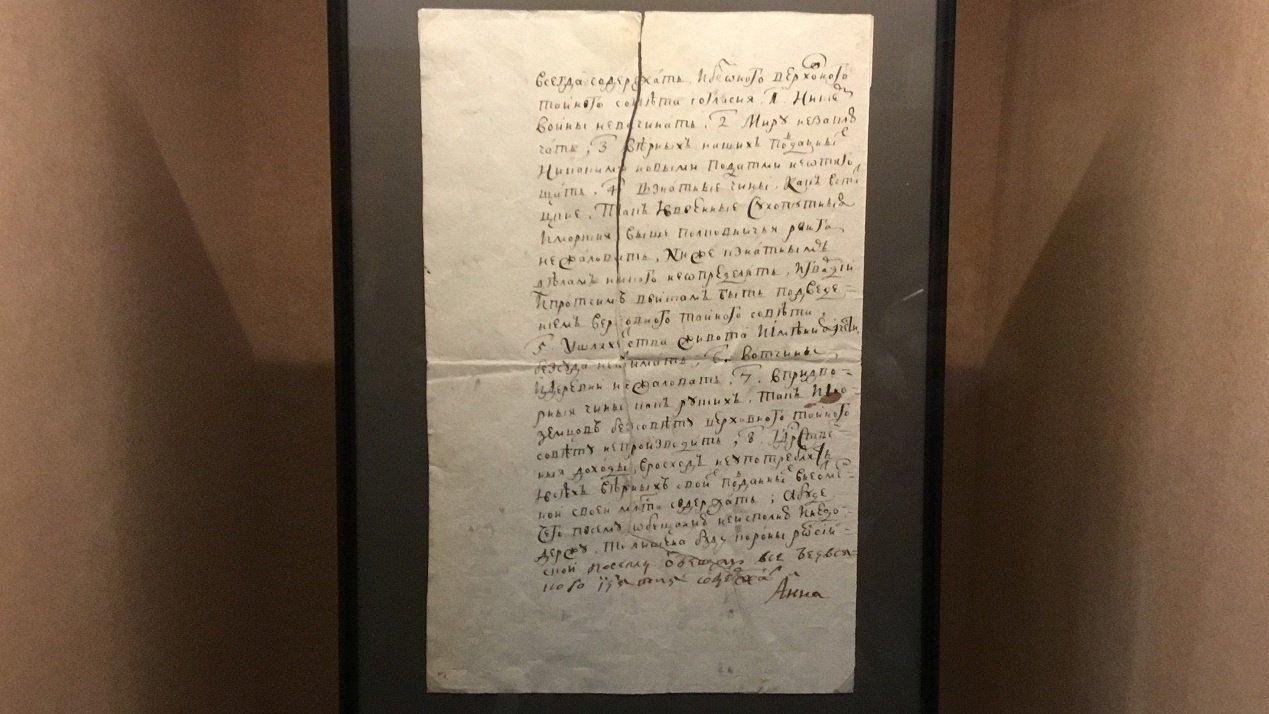 всегда содержать, и без оного верховного
тайного совѣта согласия, 1. Ни с кем
войны не всчинать, 2 Миру не заклю
чать, 3 Вѣрныхъ наших подданных
никакими новыми податми не отяго
щать, 4 В знатные чины, как в стат
цкие, такъ и в военные сухопутныя
и морския выше полковничья ранга
не жаловать, ниже к знатнымъ
дѣламъ никого не определять, и гвардии
и протчимъ войскамъ быть под веде-
ниемъ верховного тайного совѣта,
5 У шляхетства живота и имѣния и чести
без суда не отымать, 6. вотчины
и деревни не жаловать, 7. в придво-
рныя чины как руских, такъ и ино
земцовъ без совѣту верховного тайного
совѣту не производить, 8. государстве
ныя доходы в росходъ не употреблять
и всѣхъ вѣрныхъ своих подданных в неотмѣ-
ной своей милости содержать; а буде
чего по сему обещанию не исполню и не до-
держу, то лишена буду короны росий-
ской по сему обещаю все безвся-
кого содержать
Анна